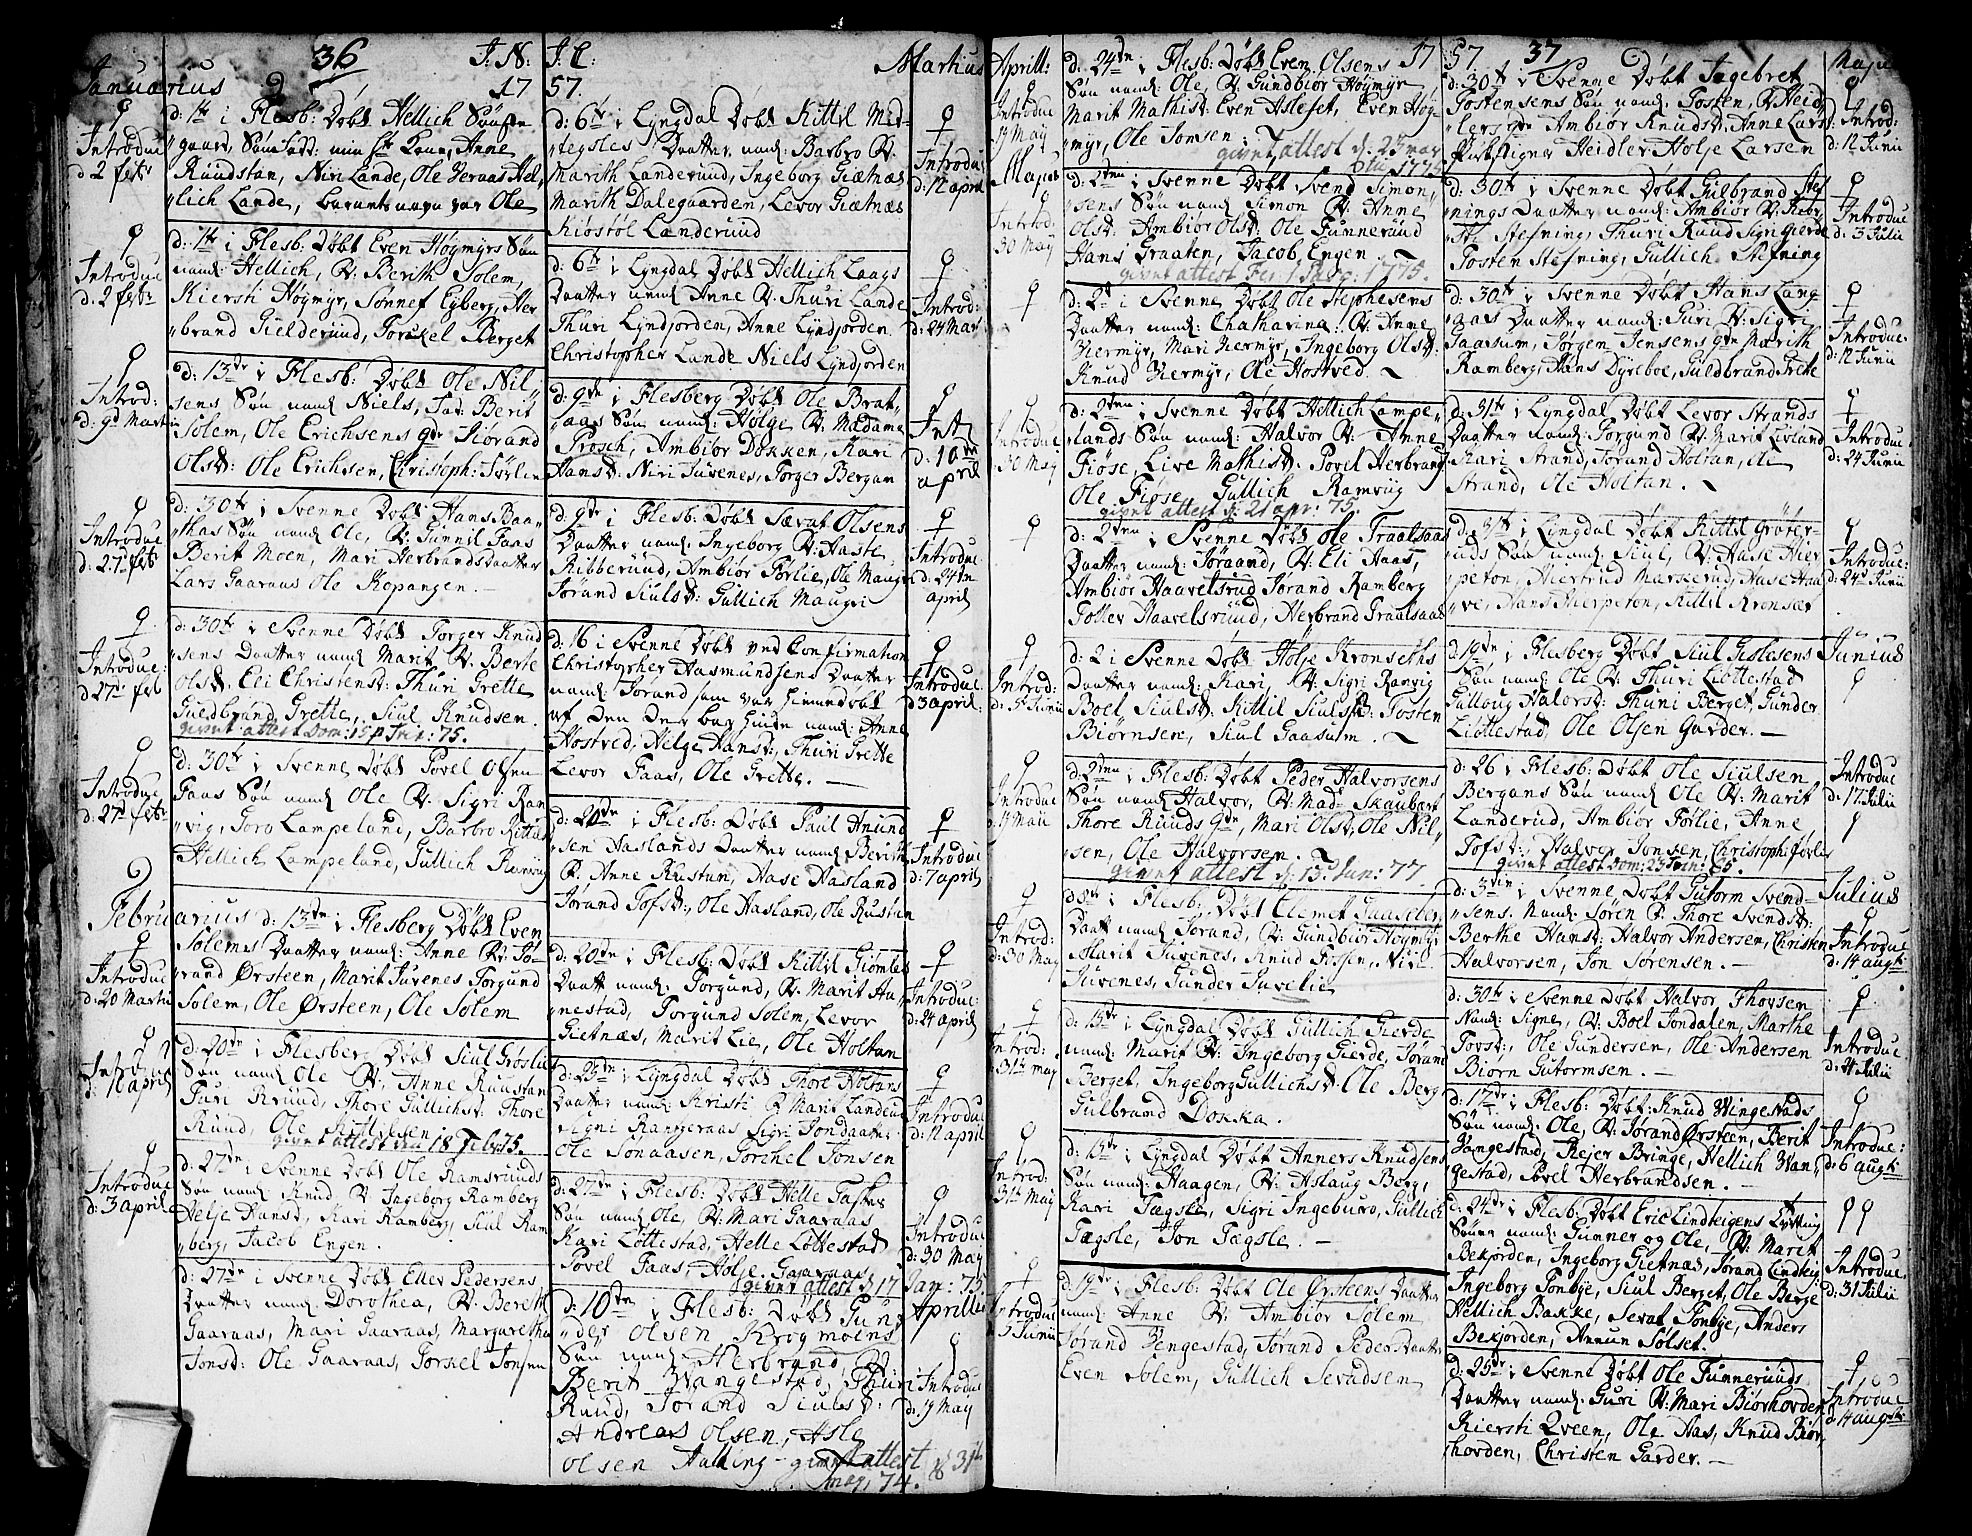 36
J: N:
Januarius
17
d: 1te i Flesb: Døbt Hellich
gaard,
Ruudstan, Niri Lande, Ole
lich Lande, barnets navn var Ole
Introduc
d 2 febr
d: 1te i Flesb: Døbt Even Høymyrs Søn
namd: Hellich, F: Berith Solem,
Kiersti Høymyr, Sønnef Eyberg, Her
brand Gielderuud, Torckel Berget
Introduc
d: 2 febr
d: 13de i Flesb: Døbt Ole Nil
sens Søn namd Niels, Fad: Berit
Solem, Ole Erichsens qde Jørand
Olsd: Ole Erichsen, Christoph: Førlie
Introd:
d: 9d Martii
d: 30te i Svenne Døbt Hans Baa
thas Søn namd Ole, F: Gunnil Faas
Berit Moen, Mari Herbrandsdaatter
Lars Gaaraas Ole Kopangen. —
Introduc
d: 27 febr
d: 30te i Svenne Døbt Torger Knud
sens Daatter namd Marit F: Berte
Olsd. Eli Christensd: Thuri Grette
Guldbrand Grette, Siul Knudsen.
givet attest Dom: 15 p Trin: 75.
Introduc:
d 27 feb
d: 30te i Svenne Døbt Povel Olsen
Faas Søn namd Ole F: Sigri Ran
vig, Goro Lampeland, Barbro
Hellich Lampeland, Gullich Ranvig
Introduc
d: 27 febr
Februarius d: 13de i Flesberg Døbt Even
Solems Daatter namd: Anne F: Jø
rand Ørsteen, Marit Juvenes Torgund
Solem, Ole Ørsteen, Ole Solem
Introduc
d: 20 Martii
d: 20de i Flesberg Døbt Siul Grøslie
Søn namd Ole F: Anne Ruustan
Turi Ruud, Thore Gullichsd: Thore
Ruud, Ole
givet attest den 18 Feb: 75.
Introd
d: 12 april
d: 27de i Svenne Døbt Ole Ramsruuds
Søn namd: Knud F Ingeborg Ramberg
Helje Hansd, Kari Ramberg, Siul Ram
berg, Jacob Engen.
Introduc
d: 3 april
d: 27de i Svenne Døbt Ellev Pedersens
Daatter namd: Dorothea, F: Bereth
Gaaraas, Mari Gaaraas, Margaretha
Jonsd: Ole Gaaraas, Torckel Jonsen
J: C:
Martius
57.
d: 6te i Lyngdal Døbt Kittil Mid
tegsles Daatter namd: Barbro F:
Marith Landeruud, Ingeborg Giætnæs
Marith Dalegaarden, Levor Giætnæs
Kiøstøl Landeruud
Introduc
d: 12 april
d: 6te i Lyngdal Døbt Hellich Laags
Daatter namd Anne F: Thuri Lande
Thuri Lyndjorden, Anne Lyndjorden
Christopher Lande Niels Lyndjorden
Introd:
d: 24 Mars
d: 9de i Flesberg Døbt Ole Brat
aas Søn namd: Holge F: Madame
Prosch, Ambiør Dokken, Kari
Hansd: Niri Juvenes, Torger Bergan
Int
d: 10de
april
d: 9de i Flesb: Døbt Sævat Olsens
Daatter namd: Ingeborg F: Haste
Ribberuud, Ambiør Førlie, Ole Maugri
Jørand Siulsd: Gullich Maugri
Introduc
d: 24de
april
d: 16 i Svenne Døbt ved Confirmation
Christopher Aasmundsens Daatter
namd: Jorand som var hiemmedøbt
af den Der bar hende namd: Anne
Hostved, Helge Hansd:, Thuri Grette
Levor Faas, Ole Grette. —
Introduc
d 3 april
d: 20de i Flesb: Døbt Paul Anund
sen Haslands Daatter namd: Berith
F:, Anne Rustun, Aase Hasland
Jørand Tofsd:, Ole Hasland, Ole Rustun
Introduc
d: 7 april
d: 20de i Flesb: Døbt Kittil Giømles
Daatt namd: Torgund, F: Marit Aa
nestad, Torgund Solem, Levor
Gietnæs, Marit Lie, Ole Holtan
Introduc:
d: 24 april
d: 25de i Lyngdal Døbt Thore Holtans
Daatter namd: Kristi F Marit Landeru
Signi Rangeraas Sigri Jondaatter
Ole Sønaasen, Torchel Jonsen
Introduc
d: 12 april
d: 27de i Flesb: Døbt Helle Fasters
Søn namd Ole, F: Mari Gaaraas
Kari Løttestad, Helle Løttestad
Povel Faas, Holje Gaaraas,
givet attest d 17 Jan: 75.
Introduc
d: 30 May
Aprilles
d: 10de i Flesb: Døbt Gun
der Olsen Krogmoens
Søn namd Herbrand, F:
Berit Wangestad, Thuri
Ruud, Jorand Siulsd:
Andreas Olsen, Asle
Olsen Halling — givet attest d 31te
may. 74.
Introduc
d: 19 May
Aprill:
17
d: 24de i Flesb: Døbt Even Olsens
Søn namd: Ole, F: Gundbiør Høymyr
Marit Mathisd: Even Aslefet, Even Høy
myr, Ole Tomsen.
givet attest d. 25 mar
1775
Introduc
19 May
Majus
d: 2den i Svenne Døbt Svend Simon
sens Søn namd Simon F: Anne
Olsd: Ambiør Olsd: Ole Tunnerud
Hans Braaten, Jacob Engen
givet attest 1775.
Introd
30 May
d: 2d i Svenne Døbt Ole Stephesens
Daatter namd: Chatharina: F: Anne
Hermyr, Mari Hermyr, Ingeborg Olsd:
Knud Hermyr, Ole Hostved.
d: 2den i Svenne Døbt Hellich Lampe
lands Søn namd: Halvor F: Anne
Fiøse, Live Mathisd: Povel Herbrand
Ole Fiøse Gullich Ramvig
givet attest d: 21 apr: 75.
Introduc
30 May
d: 2den i Svenne Døbt Ole Traalsaas
Daatter namd: Jøraand, F: Eli Aaas,
Ambiør Haavelsrud Jørand Ramberg
Tollev Haavelsruud, Herbrand Traalsaas
d: 2 i Svenne Døbt Holje Kronseths
Daatter namd: Kari, F: Sigri Ranvig
Boel Siulsd: Kittil Siulsd: Tosten
Biørnsen, Siul Gaasum.
Introd:
d: 5 Junii
d: 2den i Flesb: Døbt Peder Halvorsens
Søn namd Halvor, F: Mad: Skaubart
Thore Ruuds qde, Mari Olsd, Ole Nil
sen, Ole Halvorsen.
givet attest d: 13 Jun: 77.
Introduc
19 Maii
d: 8de i Flesb: Døbt Clemet Gaaselien
Daatt namd: Jorand, F: Gundbiør Høymyr
Marit Juvenes, Knud Fissen, Niri
Juvenes, Gunder Juvelie
Introd:
d: 30 May
d: 15de i Lyngdal Døbt Gullich Gierde
namd: Marit F: Ingeborg Gierde, Jørand
Berget, Ingeborg Gullichsd: Ole Berg
Gulbrand Dokka.
Introd:
d: 31te may
d: 15de i Lyngdal Døbt Anners Knudsens
Søn namd: Haagen, F: Aslaug Berg,
Kari Fægsle, Sigri Ingeburo, Gullich
Fægsle, Jon Fægsle. —
Introd:
31te May
d: 19de i Flesb: Døbt Ole Ørsteens Daatter
namd: Anne F: Ambiør Solem
Jorand Hengestad, Jørand Pedersdaatter
Even Solem, Gullich Sevadsen
Introduc
5 Junii
57.
37
Majus
d: 30te i Svenne Døbt Ingebret
Tostensens Søn namd. Tosten, F: Heid
lers qde Ambiør Knudsd: Anne Larsd:
Heidler Holje Larsen
Introd:
d: 12 Junii
d: 30te i Svenne Døbt Gulbrand Stef
nings Daatter namd: Ambiør F: Kiør
sti Stefning, Thuri Ruud Sigri Gierde
Tosten Stefning, Gullich Stefning
Introduc
d: 3 Julii
d: 30te i Svenne Døbt Hans Lang
aars Daatter namd: Guri F: Sigri
Faasum, Jørgen Jensens qde Marith
Ramberg, Hans Dyreboe, Guldbrand Frete
Introduc:
d: 12 Junii
d: 31te i Lyngdal Døbt Levor Strands
Daatter namd: Torgund F: Marit Livland
Kari Strand, Jorand Holtan, Eli
Strand, Ole Holtan.
Introduc
d: 24 Junii
d: 31te i Lyngdal Døbt Kittil Grøter
uds Søn namd: Siul, F: Aase Hier
peton, Hiertrud Markerud, Aase Staa
ve, Hans Hierpeton, Kittil Kronset
Introduc:
d: 24 Junii
Junius
d: 19de i Flesberg Døbt Siul Gislesens
Søn namd: Ole F: Thuri Liøttestad
Gulloug Halorsd: Thuri Berget, Gunder
Liøttestad, Ole Olsen Garder. —
d: 26 i Flesb: Døbt Ole Siulsen
Bergans Søn namd Ole F: Marit
Landerud, Ambiør Førlie, Anne
Tofsd:, Halvor Jonsen, Christoph: Førlie
givet attest Dom: 23 Trin:
Introduc
d: 17 Julii
Julius
d: 3die i Svenne Døbt Gutorm Svend
sens. Namd: Søren F: Thore Svendsd:
Berthe Hansd: Halvor Andersen, Christen
Halvorsen, Jon Sorensen. —
Introduc
d: 14 augti
d: 30te i Svenne Døbt Halvor Thovsen
Namd: Signe, F: Boel Jondalen, Marthe
Tovsd:, Ole Gundersen, Ole Andersen
Biørn Gutormsen. —
Introduc
d: 4 Julii
d: 17de i Flesb: Døbt Knud Wingestads
Søn namd: Ole, F: Jørand Ørsteen, Berit
Vangestad, Rejer Bringe, Hellich Wan
gestad, Povel Herbrandsen. —
Introduc:
d: 6 augti
d: 24de i Flesb: Døbt Eric Lindteigens
Søner namd: Gunner og Ole, F: Marit
Bekjorden, Ingeborg Gietnæs, Jorand Lindteig
Ingeborg Tonbye, Siul Berget, Ole Berge
Hellich Bakke, Sevat Tonbye, Anders
Bekjorden, Annun Solset.
Introduc.
d: 31 Julii
d: 25de i Svenne Døbt Ole Tunneruuds
Daatter namd: Guri F: Mari Biørhovden
Kiersti Qveen, Ole Aas, Knud Biør
hovden, Christen Garder. —
Introduc
d 14 augti